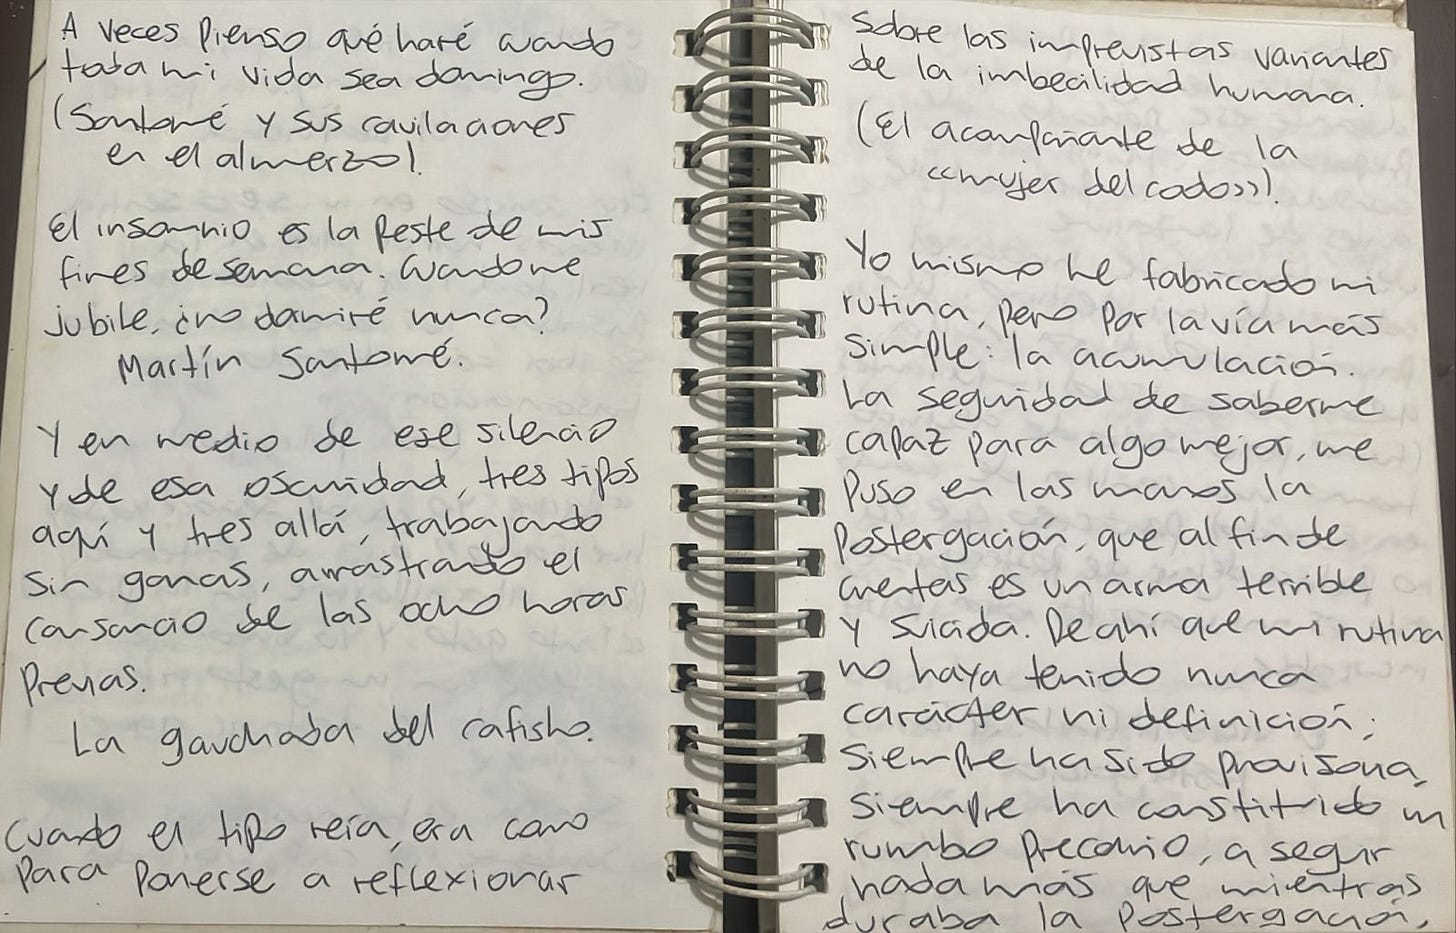 A veces pienso qué haré cuando
toda mi vida sea domingo.
(Santomé y sus cavilaciones
en el almerzo).
El insomnio es la peste de mis
fines de semana. Cuando me
jubile, ¿no dormiré nunca?
Martín Santomé.
Y en medio de ese silencio
y de esa oscuridad, tres tipos
aquí y tres allá, trabajando
sin ganas, arrastrando el
cansancio de las ocho horas
previas.
La gauchada del cafisho.
Cuando el tipo reía, era como
para ponerse a reflexionar
sobre las imprevistas variantes
de la imbecilidad humana.
(El acompañante de la
<<mujer del codo>>).
Yo mismo he fabricado mi
rutina, pero por la vía más
simple: la acumulación.
La seguridad de saberme
capaz para algo mejor, me
puso en las manos la
postergación, que al fin de
cuentas es un arma terrible
y suicida. De ahí que mi rutina
no haya tenido nunca
carácter ni definición;
siempre ha sido provisoria,
siempre ha constituido un
rumbo precario, a seguir
nada más que mientras
duraba la postergación,